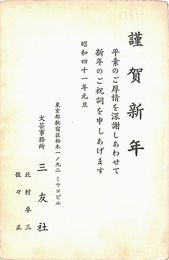 謹賀新年
平素のご厚情を深謝しあわせて
新年のご祝詞を申しあげます
昭和四十一年元旦
東京都新宿区柏木一ノ九二ミヤコビル
文芸事務所 三友社
北村卓三
佐々正